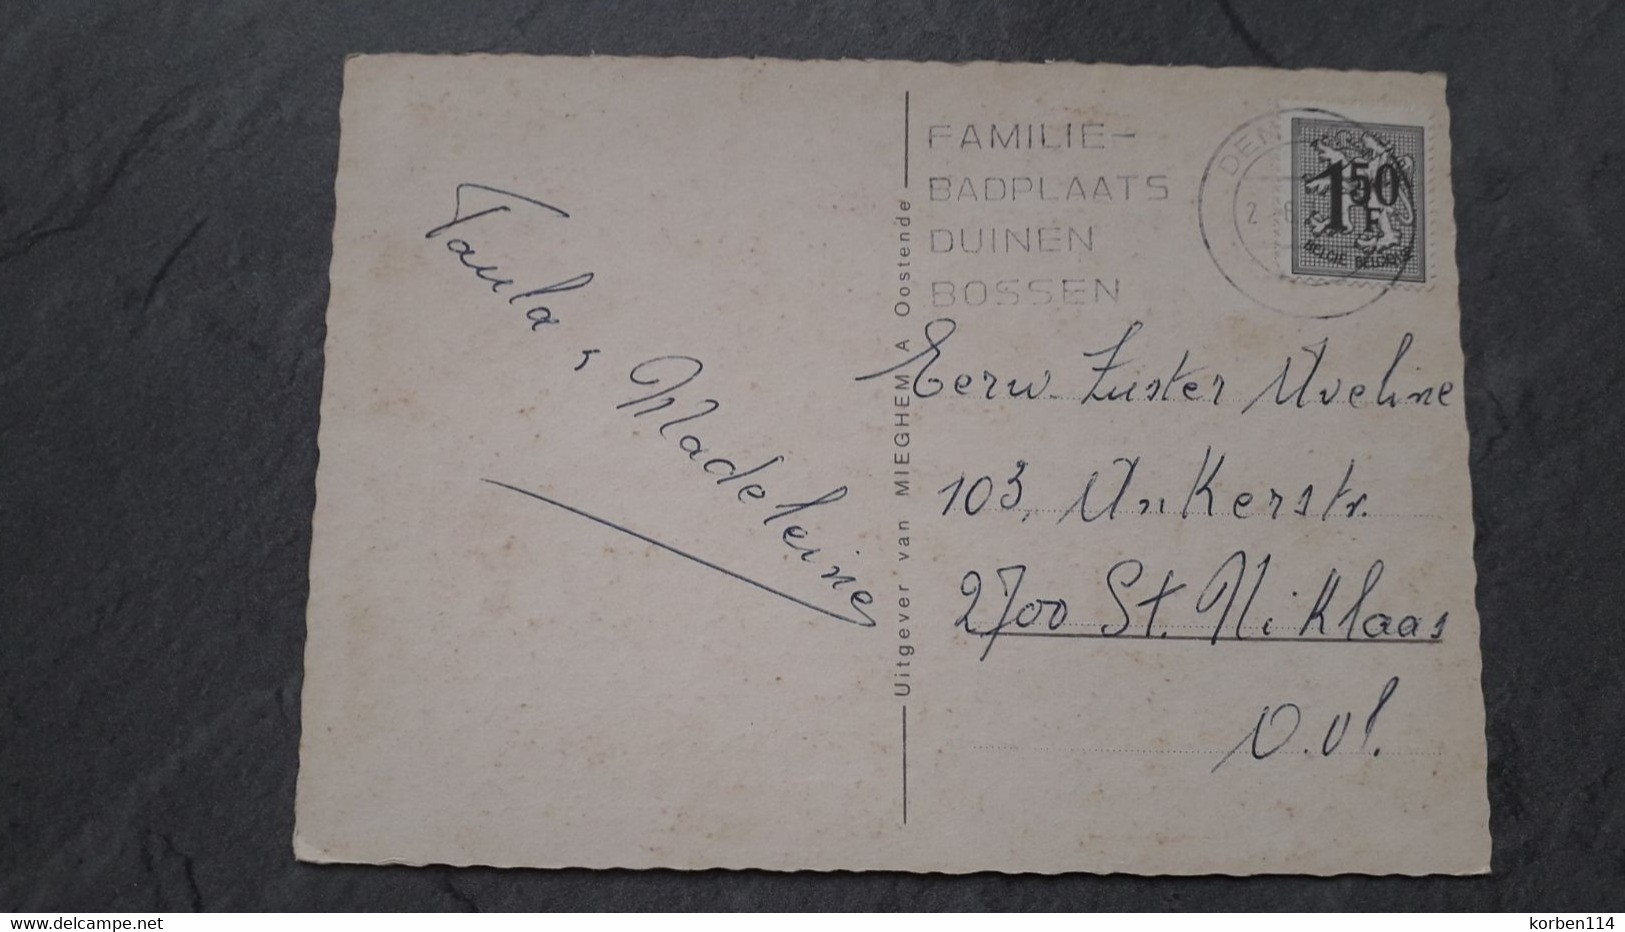 FAMILIE-
BADPLAATS
DUINEN
BOSSEN
DEN
2
1 50 F
BELGIE BELGIQUE
Paula, Madeleine
Uitgever van MIEGHEM A Oostende
Eerw. Zuster Aveline
103, Ankerstr.
2700 St. Niklaas
O.Vl.
www.delcampe.net
korben114